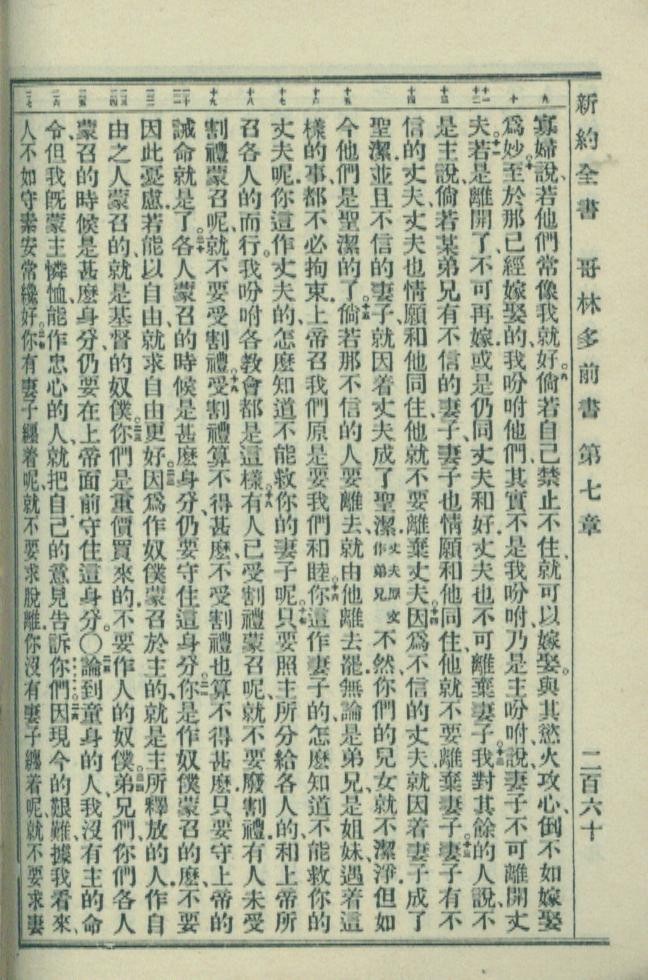 新約全書　哥林多前書　第七章　二百六十
寡婦說、若他們常像我就好。倘若自己禁止不住、就可以嫁娶。與其慾火攻心、倒不如嫁娶
爲妙。至於那已經嫁娶的、我吩咐他們、其實不是我吩咐、乃是主吩咐、說妻子不可離開丈
夫。若是離開了、不可再嫁、或是仍同丈夫和好、丈夫也不可離棄妻子。我對其餘的人說、不
是主說、倘若某弟兄有不信的妻子、妻子也情願和他同住、他就不要離棄妻子。妻子有不
信的丈夫、丈夫也情願和他同住、他就不要離棄丈夫。因爲不信的丈夫、就因着妻子成了
聖潔、並且不信的妻子、就因着丈夫成了聖潔、丈夫原文作弟兄不然、你們的兒女就不潔淨、但如
今他們是聖潔的了。倘若那不信的人要離去、就由他離去罷、無論是弟兄、是姐妹、遇着這
樣的事、都不必拘束、上帝召我們原是要我們和睦。你這作妻子的、怎麼知道不能救你的
丈夫呢、你這作丈夫的、怎麼知道不能救你的妻子呢。只要照主所分給各人的、和上帝所
召各人的而行。我吩咐各教會都是這樣。有人已受割禮蒙召呢、就不要廢割禮、有人未受
割禮蒙召呢、就不要受割禮。受割禮算不得甚麼、不受割禮也算不得甚麼、只要守上帝的
誡命就是了。各人蒙召的時候是甚麼身分、仍要守住這身分。你是作奴僕蒙召的麼、不要
因此憂慮、若能以自由、就求自由更好。因爲作奴僕蒙召於主的、就是主所釋放的人、作自
由之人蒙召的、就是基督的奴僕。你們是重價買來的、不要作人的奴僕。弟兄們、你們各人
蒙召的時候是甚麼身分、仍要在上帝面前守住這身分。〇論到童身的人、我沒有主的命
令、但我旣蒙主憐恤、能作忠心的人、就把自己的意見告訴你們。因現今的艱難、據我看來、
人不如守素安常纔好。你有妻子纏着呢、就不要求脫離、你沒有妻子纏着呢、就不要求妻